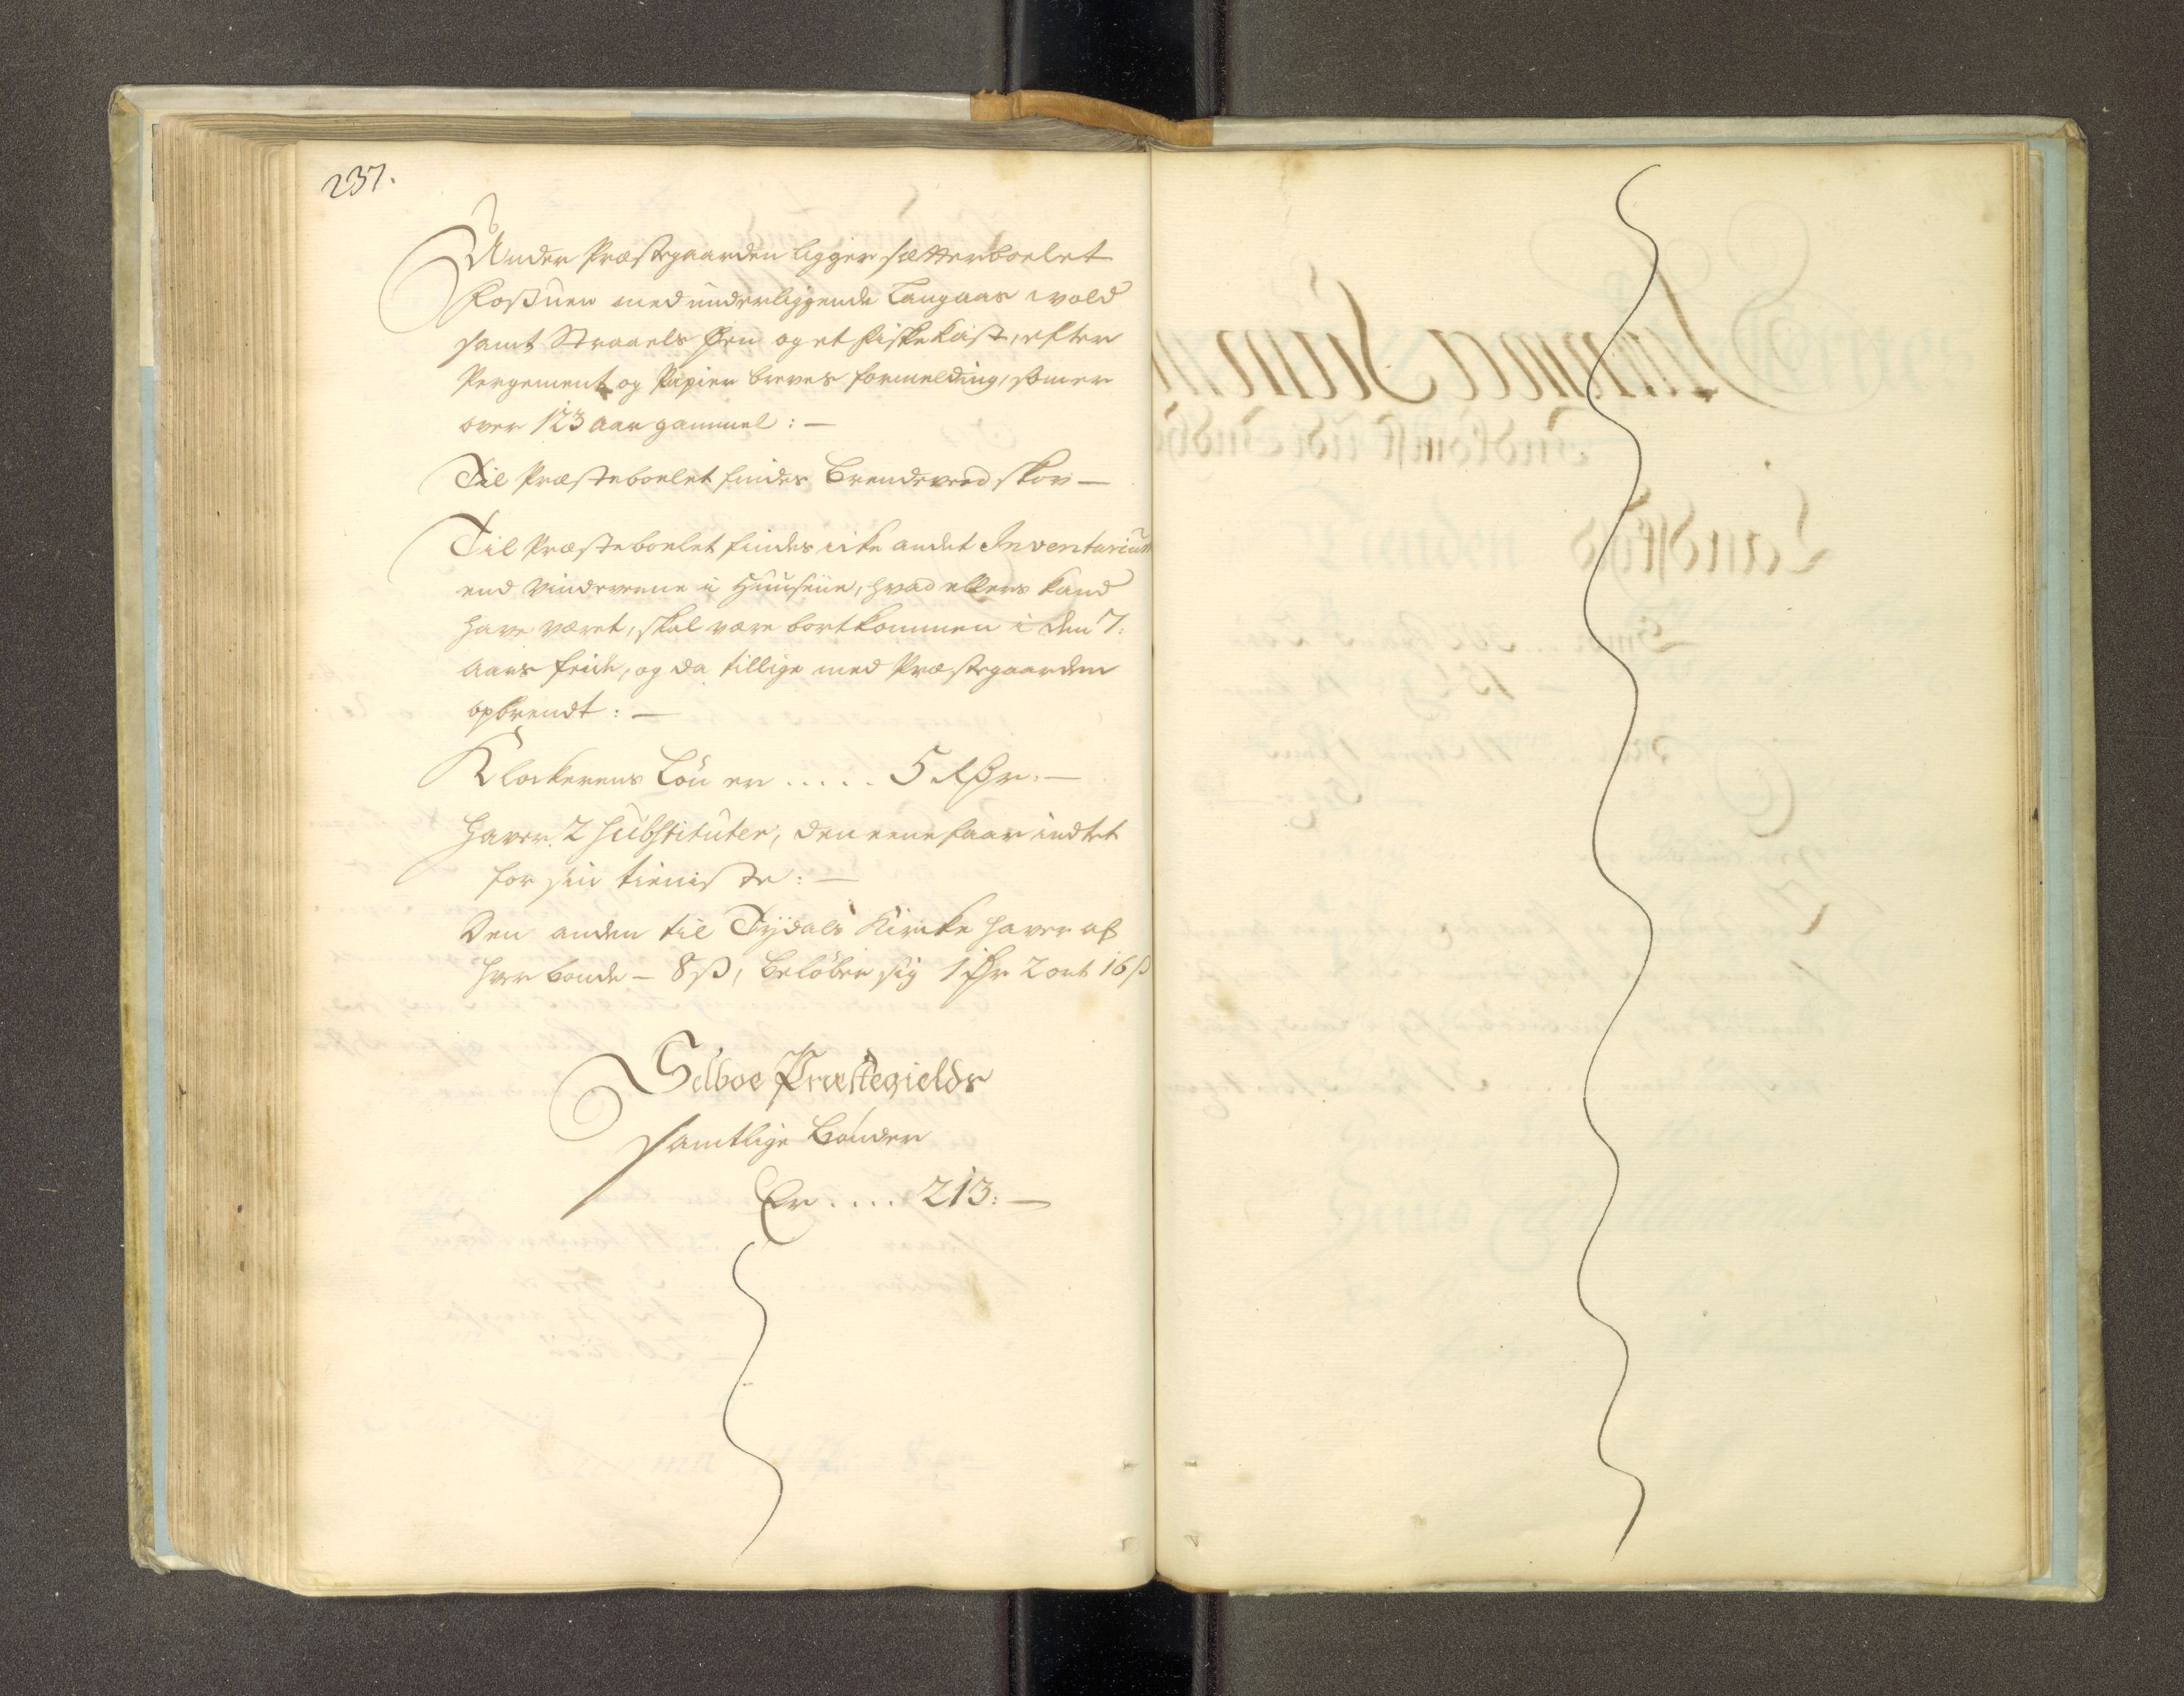 237.
Under Præstegaarden ligger sætterboelet
Foßuen med underliggende Langaas wold
samt Straaels Øen og et fiskekast, efter
Pergement og Papier breves formelding, som er
over 123 aar gammel: —
Til Præsteboelet findes brendeveed skov —
Til Præsteboelet findes icke andet Inventarium
end vinduerne i Huusene, hvad ellers kand
have været, skal være bortkommen i den 7:
aars feide, og da tillige med Præstegaarden
opbrendt: —
Klockerens Løn er ..... 5 Rdr: —
haver 2 Substituter, den eene faar indtet
for sin tieniste: —
Den anden til Tydals Kircke haver af
hver bonde — 8 ß, beløber sig 1 dr 2 ort 16 ß
Selboe Præstegields
samtlige Bønder
Er .... 213: —